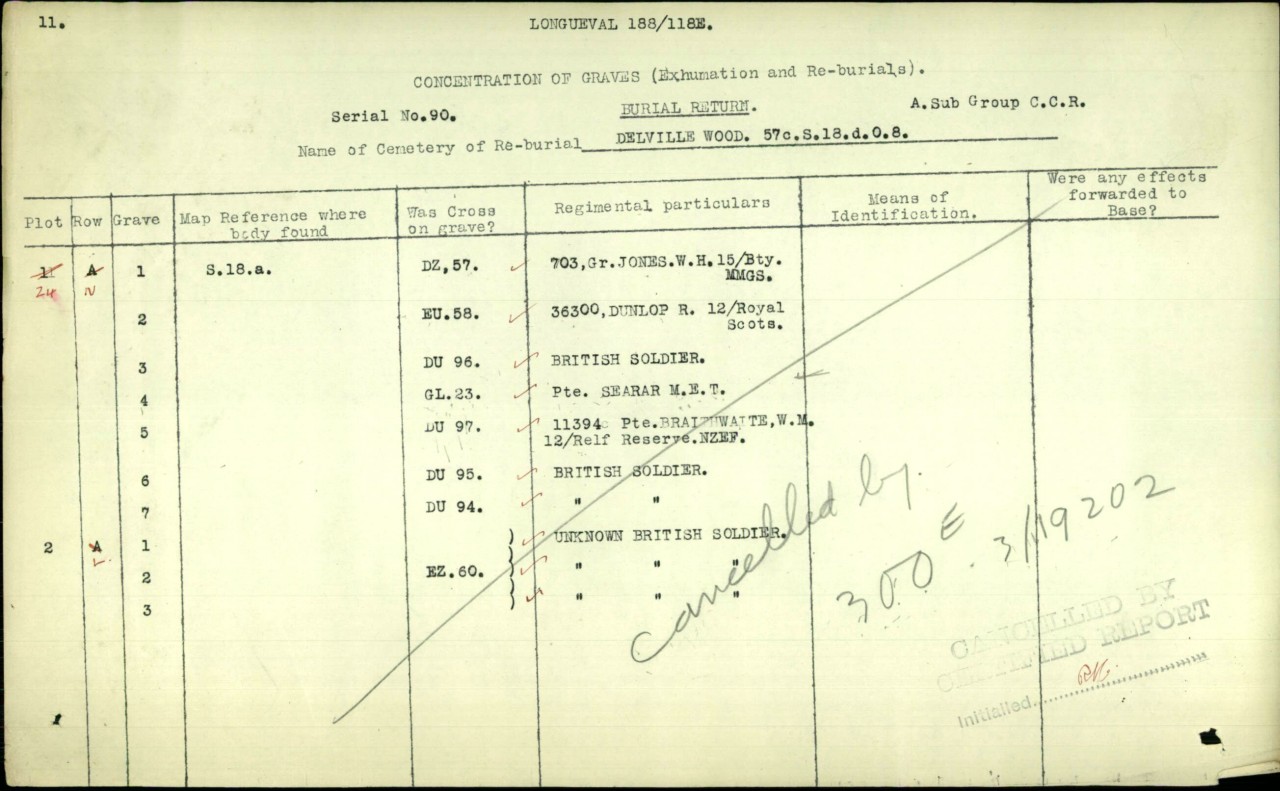 11.
LONGUEVAL 188/118E.
CONCENTRATION OF GRAVES (Exhumation and Re-burials).
Serial No.90. BURIAL RETURN. A.Sub Group C.C.R.
Name of Cemetery of Re-burial DELVILLE WOOD. 57c.S.18.d.0.8.
Plot Row Grave Map Reference where body found Was Cross on grave? Regimental particulars Means of Identification. Were any effects forwarded to Base?
A 1 S.18.a. DZ,57. 703,Gr.JONES.W.H.15/Bty.
MMGS.
24 N
2 EU.58. 36300,DUNLOP R. 12/Royal
Scots.
3 DU 96. BRITISH SOLDIER.
4 GL.23. Pte. SEARAR M.E.T.
5 DU 97. 11394 Pte.BRAITHWAITE,W.M.
12/Relf Reserve.NZEF.
6 DU 95. BRITISH SOLDIER.
7 DU 94. " "
2 A 1 UNKNOWN BRITISH SOLDIER.
2 EZ.60. " " "
3 " " "
Cancelled by
300 E
CANCELLED BY
CERTIFIED REPORT
Initialled